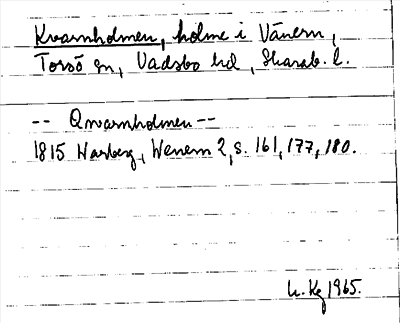 Kvarnholmen, holme i Vänern,
Torsö sn, Vadsbo hd, Skarab. l.
-- Qvarnholmen --
1815 Warberg, Wenern 2, s. 161, 177, 180.
1965.